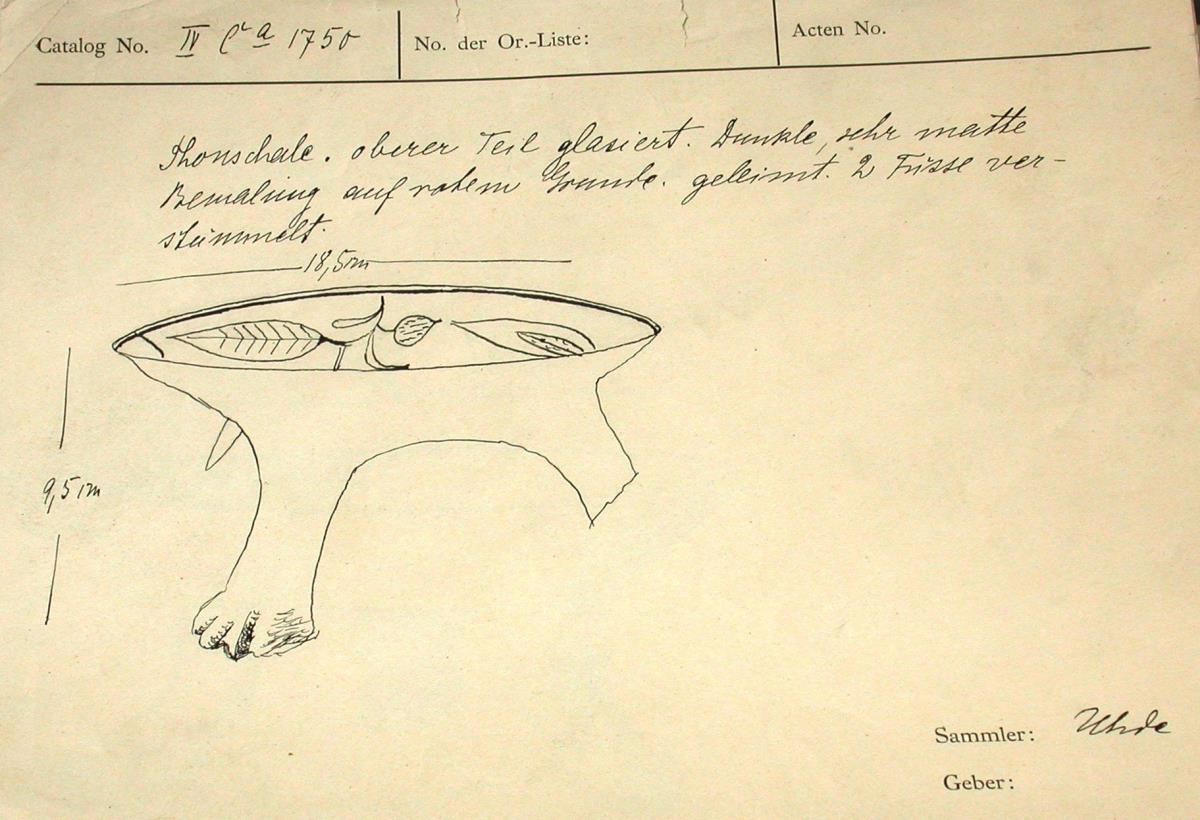 Catalog No. IV Ca 1750
No. der Or.-Liste:
Acten No.
Thonschale. oberer Teil glasiert. Dunkle, sehr matte
Bemalung auf rotem Grunde. geleimt. 2 Füsse ver-
stümmelt.
18,5 cm
9,5 cm
Sammler: Uhde
Geber: